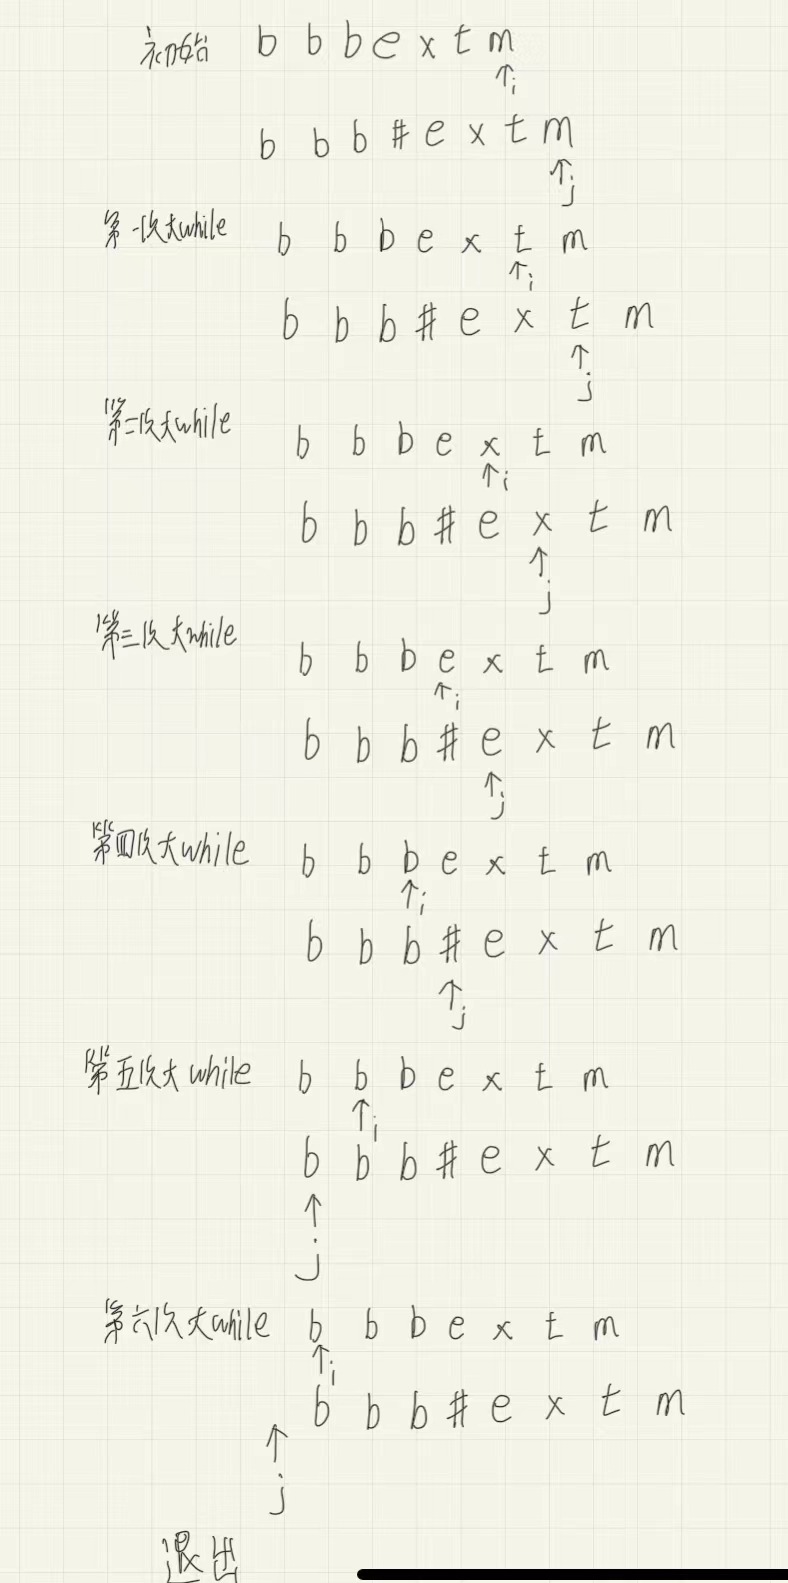 初始 b b b e x t m
↑i
b b b # e x t m
↑j
第一次大while b b b e x t m
↑i
b b b # e x t m
↑j
第二次大while b b b e x t m
↑i
b b b # e x t m
↑j
第三次大while b b b e x t m
↑i
b b b # e x t m
↑j
第四次大while b b b e x t m
↑i
b b b # e x t m
↑j
第五次大while b b b e x t m
↑i
b b b # e x t m
↑j
第六次大while b b b e x t m
↑i
b b b # e x t m
↑j
退出